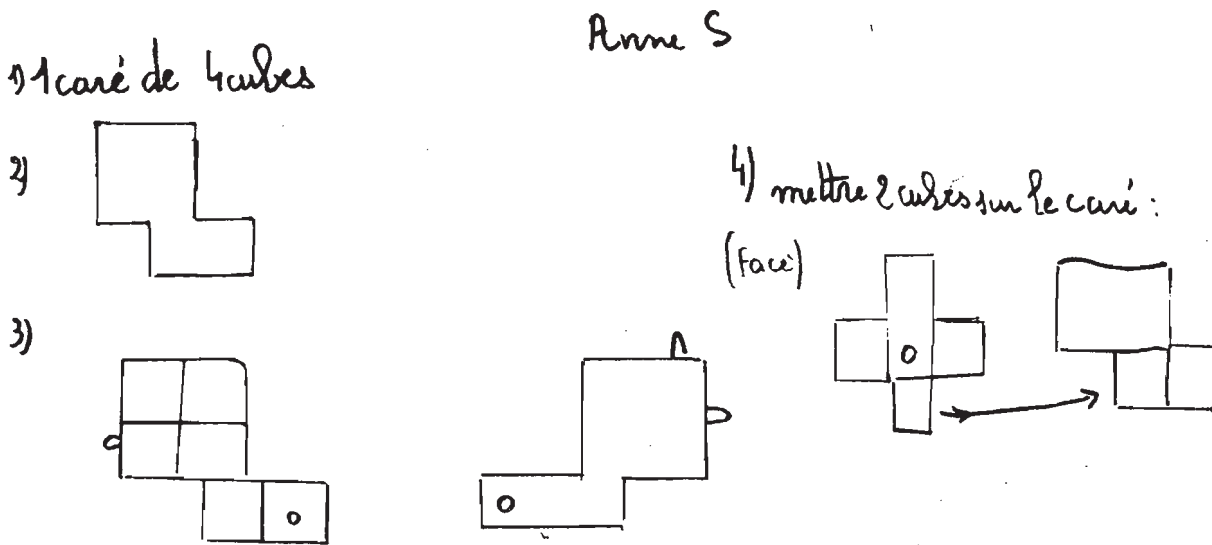 Anne S
1) 1 caré de 4 cubes
2)
3)
4) mettre 2 cubes sur le caré :
(Face)